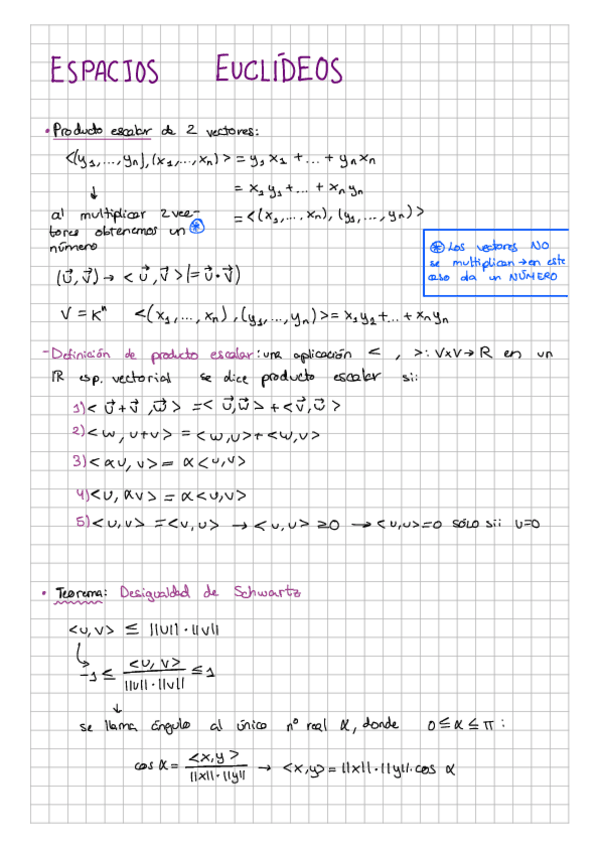 ESPACIOS EUCLÍDEOS
• Producto escalar de 2 vectores:
<(y₁,...,yₙ),(x₁,...,xₙ)> = y₁x₁ + ... + yₙxₙ
↓
= x₁y₁ + ... + xₙyₙ
al multiplicar 2 vec-
tores obtenemos un ⊛
número
= <(x₁,...,xₙ), (y₁,...,yₙ)>
⊛ Los vectores NO
se multiplican → en este
caso da un NÚMERO
(u⃗,v⃗) → <u⃗,v⃗> (= u⃗·v⃗)
V = Kⁿ <(x₁,...,xₙ),(y₁,...,yₙ)> = x₁y₂ + ... + xₙyₙ
- Definición de producto escalar: una aplicación < , >: V×V → R en un
R esp. vectorial se dice producto escalar si:
1) <u⃗+v⃗,w⃗> = <u⃗,w⃗> + <v⃗,w⃗>
2) <w,u+v> = <w,u> + <w,v>
3) <αu,v> = α<u,v>
4) <u,αv> = α<u,v>
5) <u,v> = <v,u> → <u,u> ≥0 → <u,u>=0 SÓLO sii u=0
• Teorema: Desigualdad de Schwartz
<u,v> ≤ ||u||·||v||
-1 ≤ <u,v> / ||u||·||v|| ≤ 1
↓
se llama ángulo al único nº real α, donde 0≤α≤π:
cos α = <x,y> / ||x||·||y|| → <x,y> = ||x||·||y||·cos α